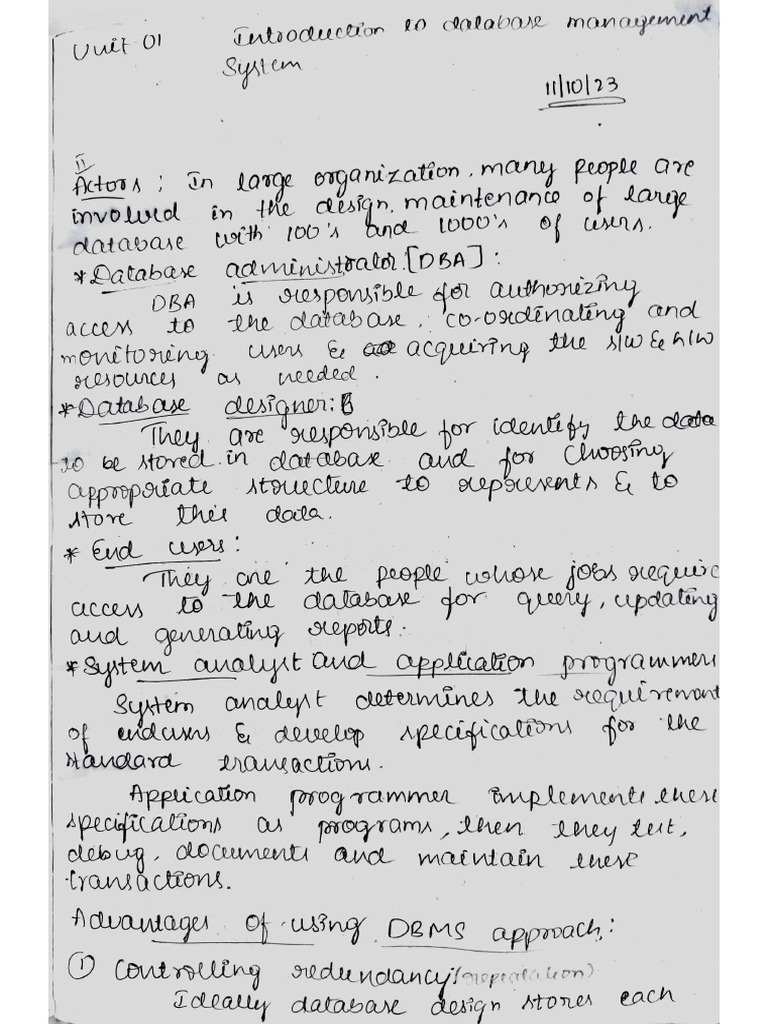 Unit 01 Introduction to database management
System
11/10/23
11
Actors : In large organization, many people are
involved in the design, maintenance of large
database with 100's and 1000's of users.
* Database administrator [DBA] :
DBA is responsible for authorizing
access to the database, co-ordinating and
monitoring users & acquiring the s/w & h/w
resources as needed.
* Database designer :
They are responsible for identify the data
to be stored in database and for choosing
appropriate structure to represents & to
store this data.
* End users :
They are the people whose jobs require
access to the database for query, updating
and generating reports.
* System analyst and application programmers
System analyst determines the requirement
of endusers & develop specifications for the
standard transactions.
Application programmer implements these
specifications as programs, then they test,
debug, documents and maintain these
transactions.
Advantages of using DBMS approach :
① Controlling redundancy (repetation)
Ideally database design stores each